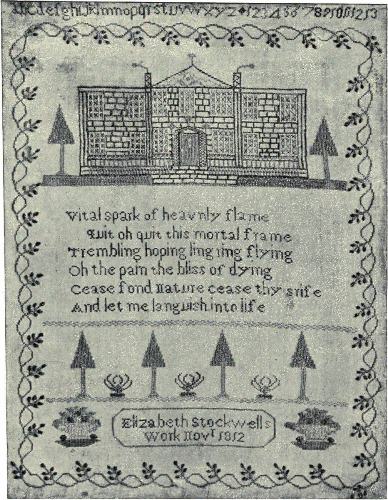 abcdefghijklmnopqrstuvwxyz 12345678910111213
Vital spark of heavnly flame
Quit oh quit this mortal frame
Trembling hoping lingring flying
Oh the pain the bliss of dying
Cease fond nature cease thy srife
And let me languish into life
Elizabeth Stockwells
Work Novr 1812